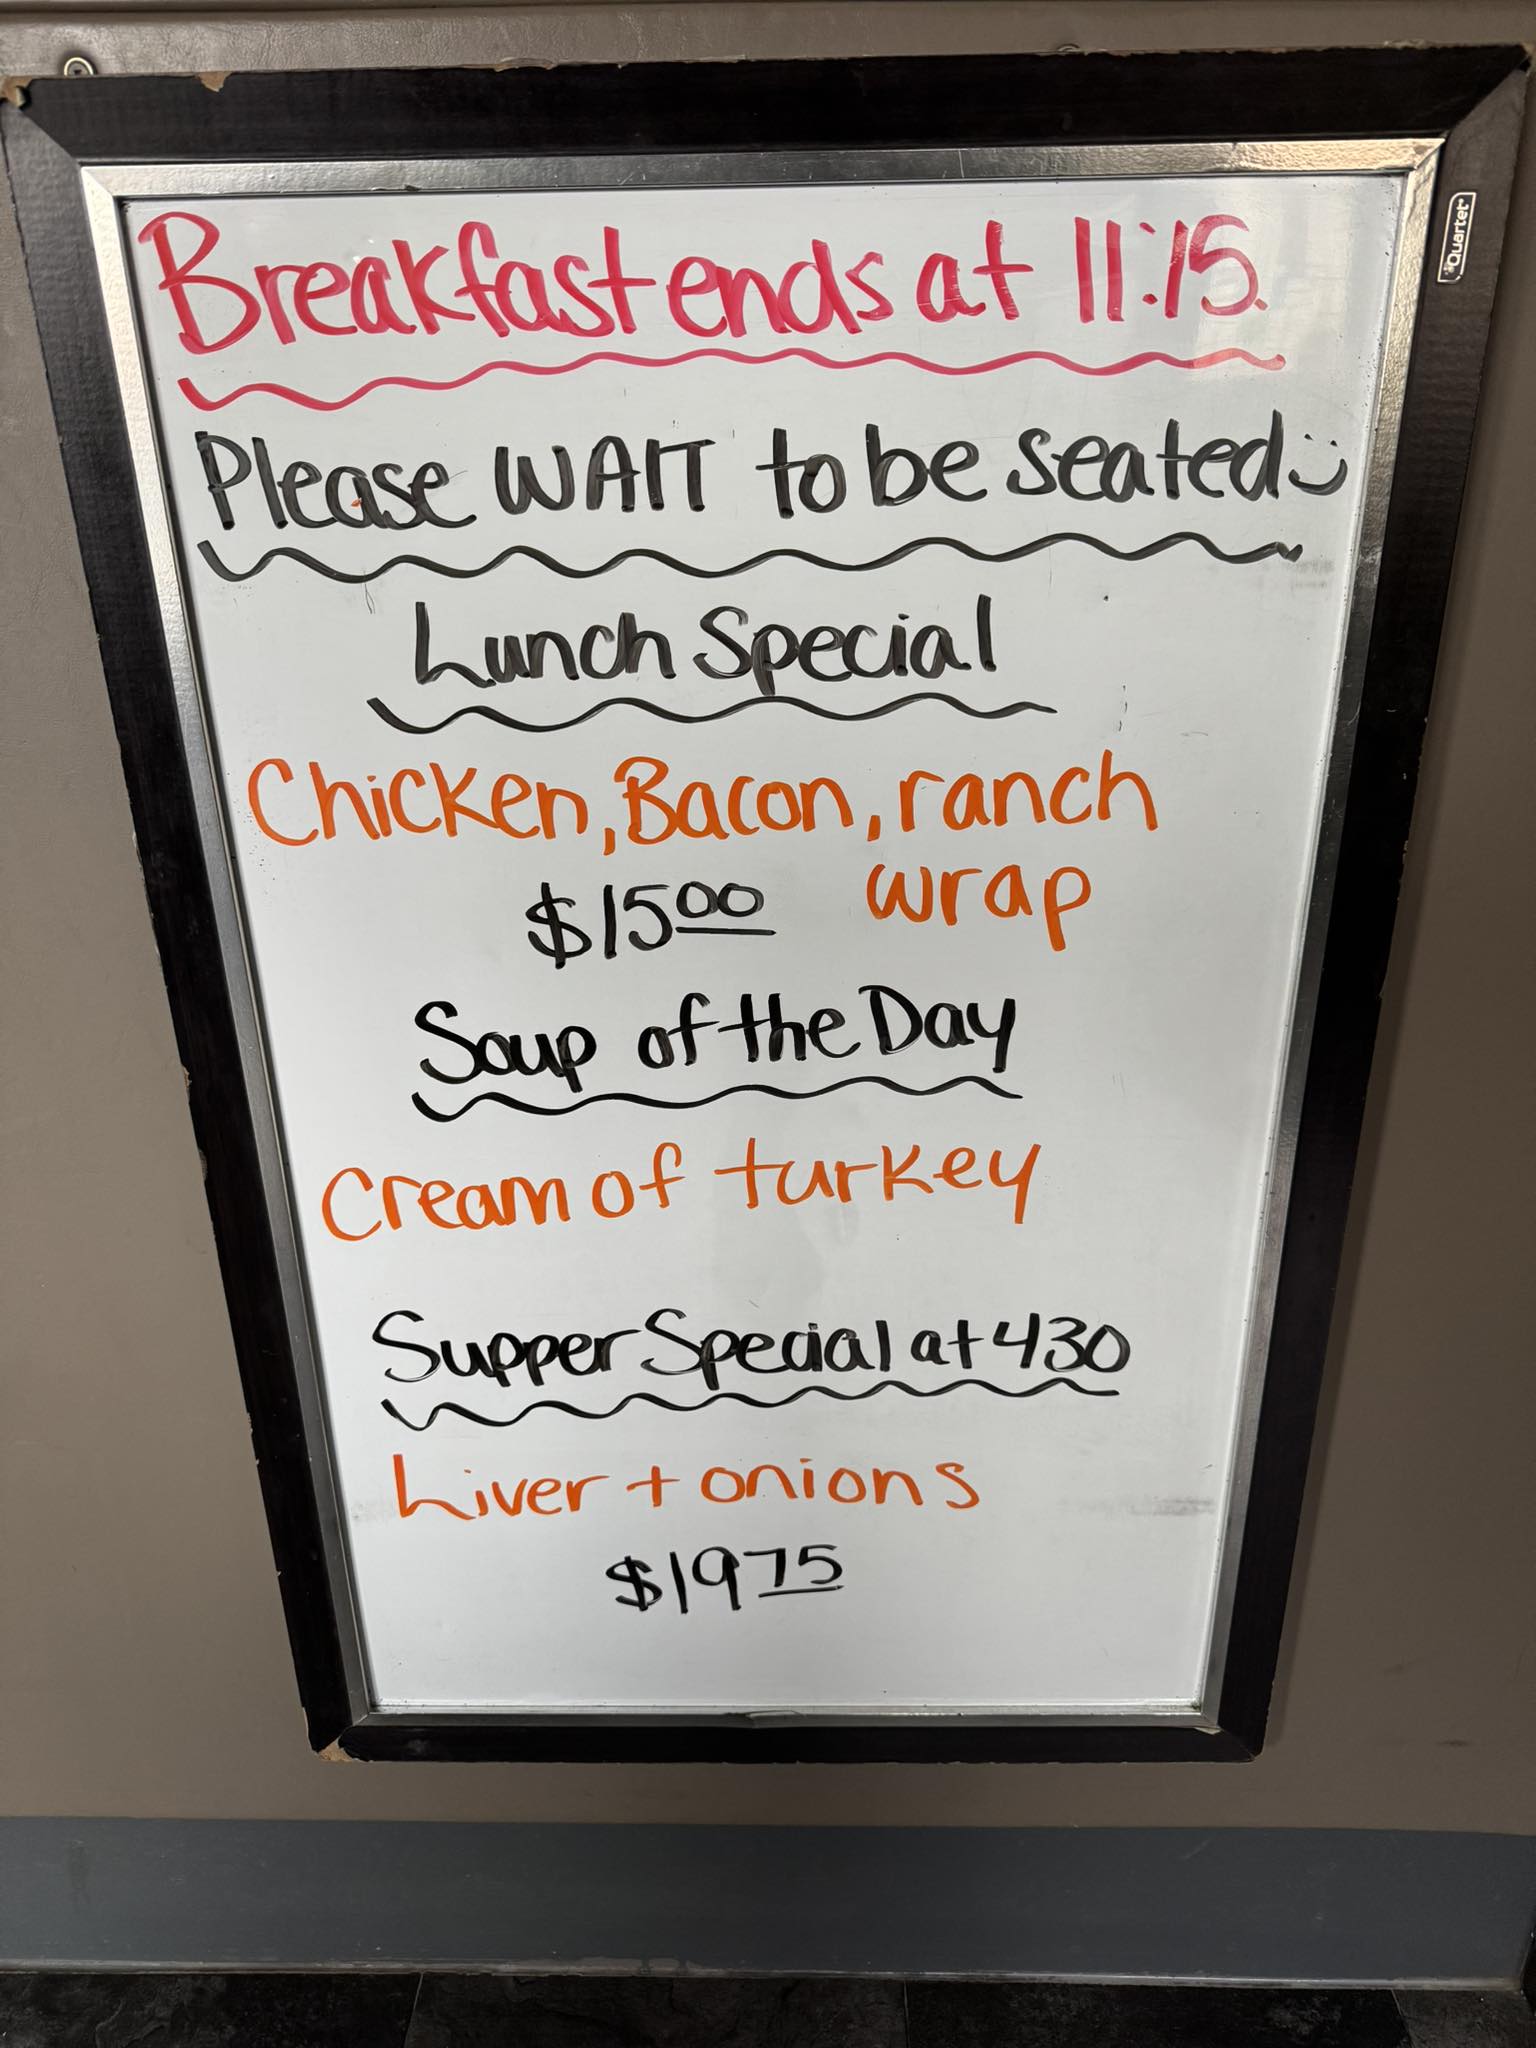 Breakfast ends at 11:15.
Please WAIT to be seated :)
Lunch Special
Chicken, Bacon, ranch
wrap
$15.00
Soup of the Day
Cream of turkey
Supper Special at 430
Liver + onions
$19 75
Quartet